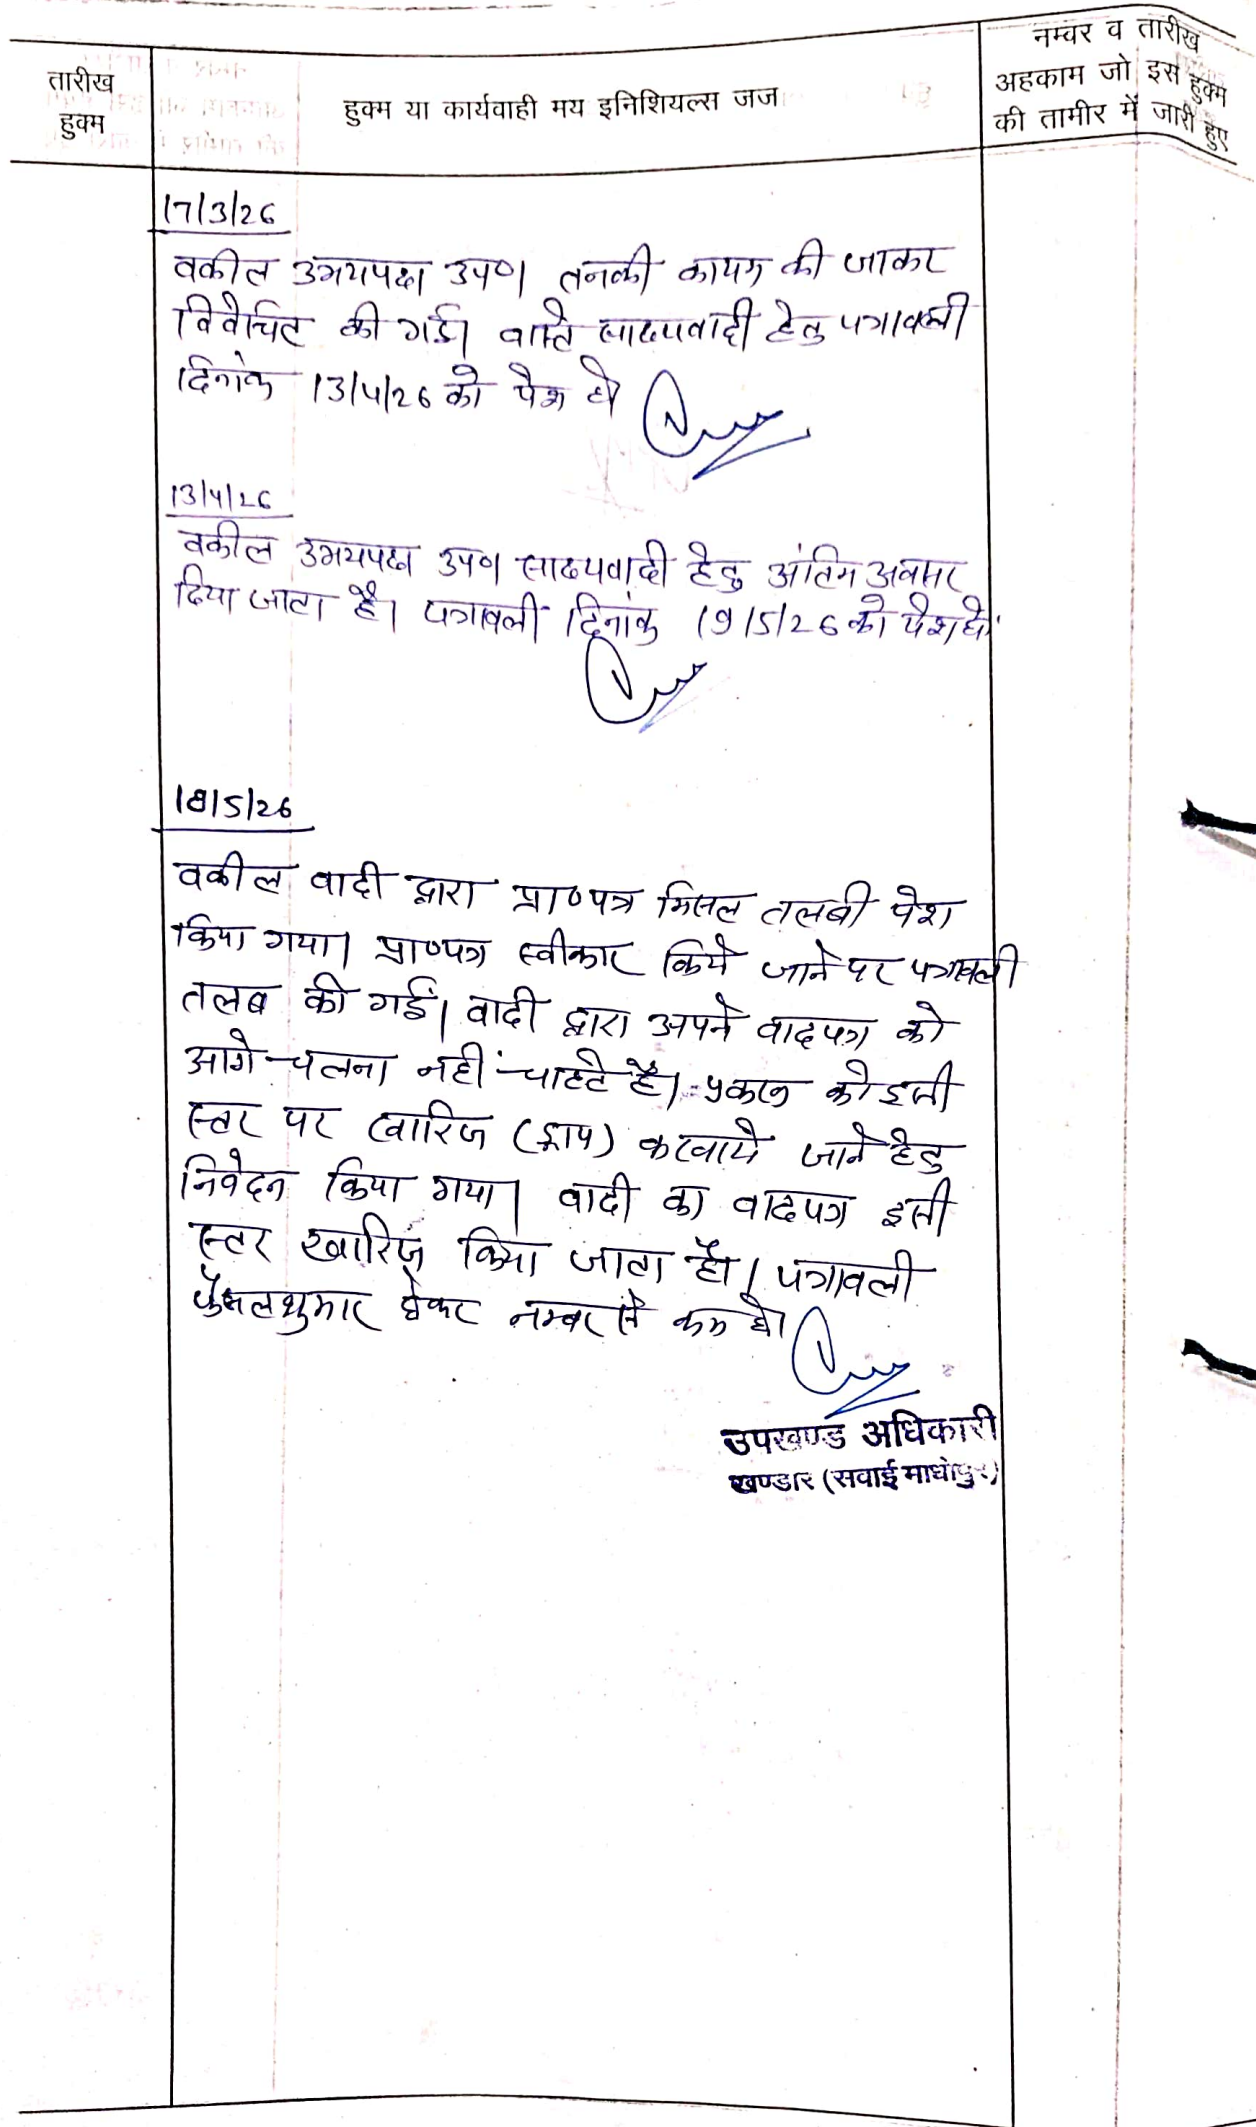 तारीख
हुक्म
हुक्म या कार्यवाही मय इनिशियल्स जज
नम्बर व तारीख
अहकाम जो इस हुक्म
की तामीर में जारी हुए
17/3/26
वकील उभयपक्ष उप० तनकी कायम की जाकर
विवेचित की गई। वास्ते साक्ष्यवादी हेतु पत्रावली
दिनांक 13/4/26 को पेश हो
13/4/26
वकील उभयपक्ष उप० साक्ष्यवादी हेतु अंतिम अवसर
दिया जाता है। पत्रावली दिनांक 19/5/26 को पेश हो
18/5/26
वकील वादी द्वारा प्रा०पत्र मिसल तलबी पेश
किया गया। प्रा०पत्र स्वीकार किये जाने पर पत्रावली
तलब की गई। वादी द्वारा अपने वादपत्र को
आगे चलना नहीं चाहते है। प्रकरण को इसी
स्तर पर खारिज (ड्राप) करवाये जाने हेतु
निवेदन किया गया। वादी का वादपत्र इसी
स्तर खारिज किया जाता है। पत्रावली
फैसलशुमार होकर नम्बर से कम हो।
उपखण्ड अधिकारी
खण्डार (सवाई माधोपुर)